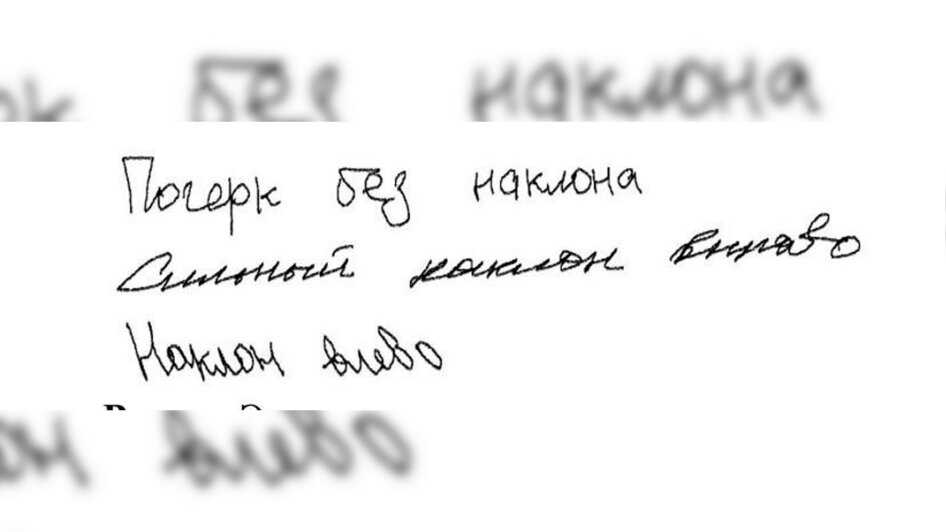 Почерк без наклона
Сильный наклон вправо
Наклон влево